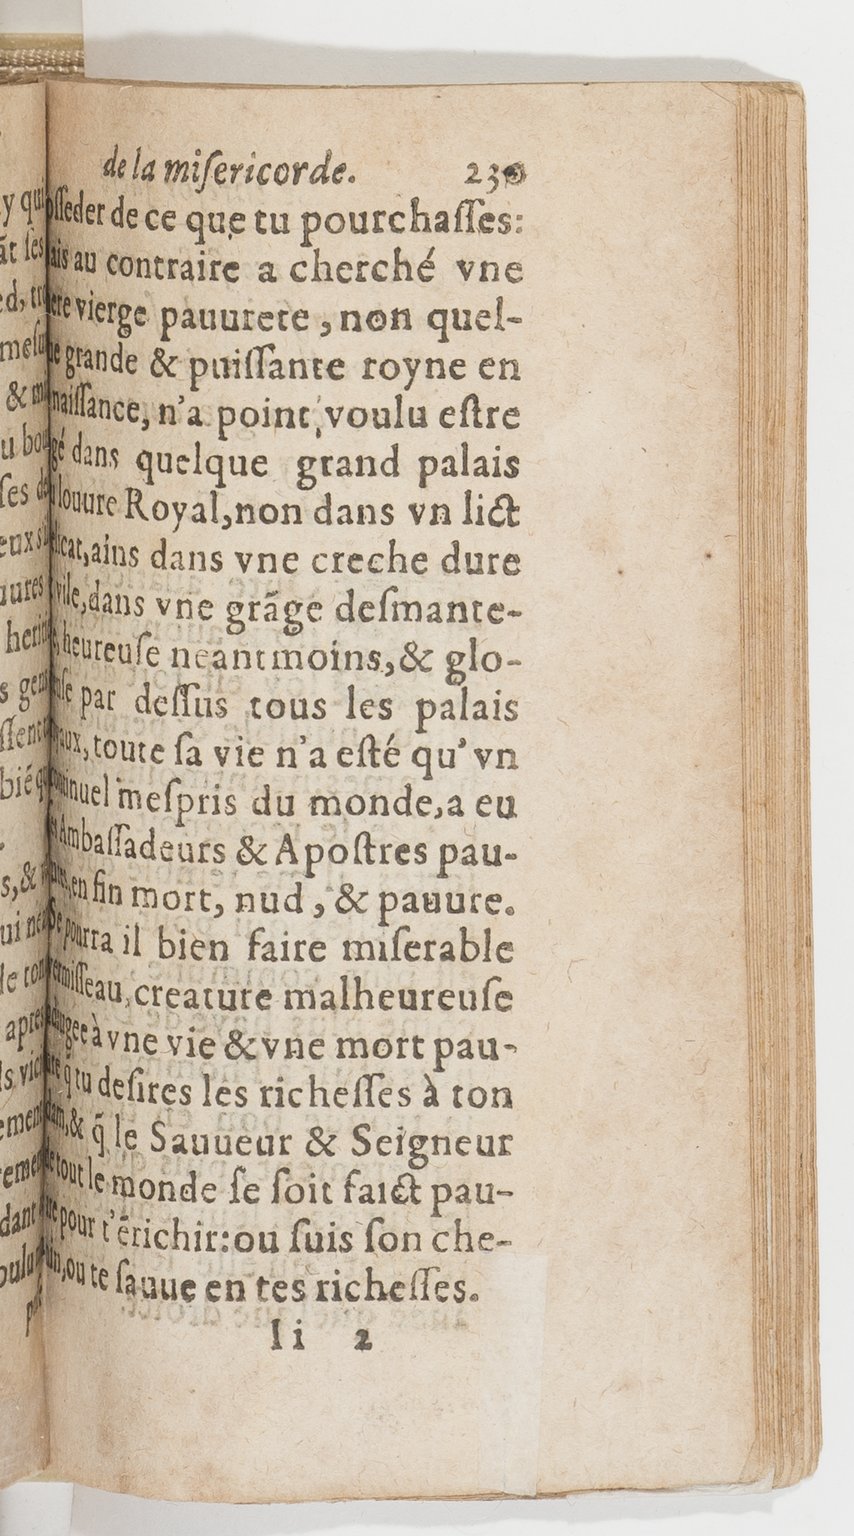 de la miſericorde. 230
ſſeder de ce que tu pourchaſſes:
ais au contraire a cherché vne
ere vierge pauurete, non quel-
e grande & puiſſante royne en
naiſſance, n'a point, voulu eſtre
gé dans quelque grand palais
louure Royal, non dans vn lict
licat, ains dans vne creche dure
vile, dans vne grãge deſmante-
heureuſe neantmoins, & glo-
ſe par deſſus tous les palais
aux, toute ſa vie n'a eſté qu'vn
inuel meſpris du monde, a eu
Ambaſſadeurs & Apoſtres pau-
en fin mort, nud, & pauure.
pourra il bien faire miſerable
miſſeau, creature malheureuſe
gee à vne vie & vne mort pau-
q̃ tu deſires les richeſſes à ton
& q̃ le Sauueur & Seigneur
tout le monde ſe ſoit faict pau-
pour t'ẽrichir: ou ſuis ſon che-
ou te ſauue en tes richeſſes.
Ii 2